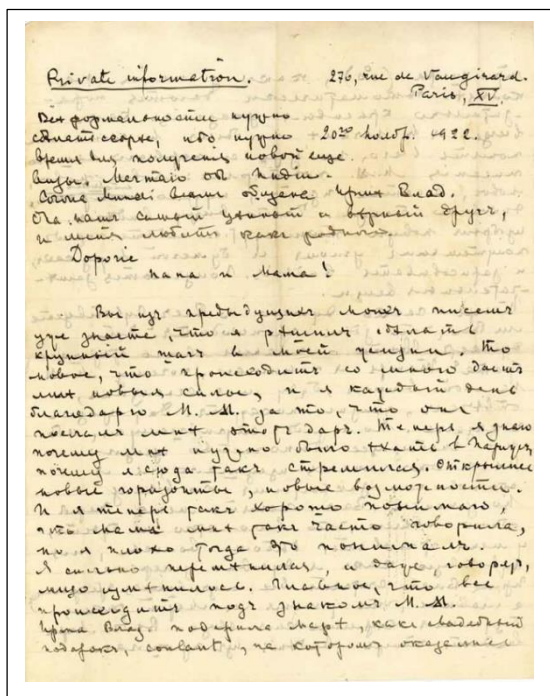 Private information. 276, rue de Vaugirard.
Paris, XV.
Всѣ формальности нужно
сдѣлать скорѣе, ибо нужно 20го Ноября 1922.
время для полученія новой еще
визы. Мечтаю объ Индіи.
всѣмъ Влад.
Она нашъ самый цѣнный и вѣрный другъ,
и меня любитъ какъ родного.
Дорогіе
папа и мама!
Вы изъ предыдущихъ моихъ писемъ
уже знаете, что я рѣшилъ сдѣлать
крупный шагъ въ моей жизни. То
новое, что происходитъ со мною даетъ
мнѣ новыя силы, и я каждый день
благодарю М. М. за то, что онъ
послалъ мнѣ этотъ даръ. Теперь я знаю
почему мнѣ нужно было ѣхать въ Парижъ,
почему я сюда такъ стремился. Открылись
новые горизонты, новыя возможности.
И я теперь такъ хорошо понимаю,
что мама мнѣ такъ часто говорила,
но я плохо тогда это понималъ.
Я сильно перемѣнился, и даже, говорятъ,
лицо измѣнилось. Главное, что все
происходитъ подъ знакомъ М. М.
Влад. подарила какъ свадебный
подарокъ, на которомъ оказались